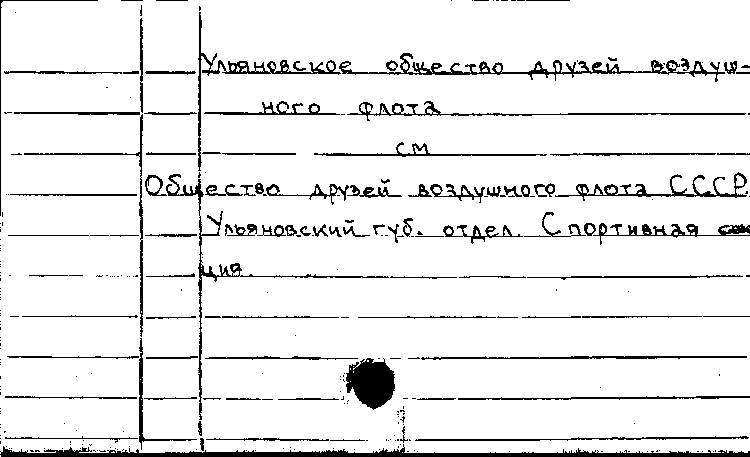 Ульяновское общество друзей воздуш-
ного флота
см
Общество друзей воздушного флота СССР.
Ульяновский губ. отдел. Спортивная
ция.